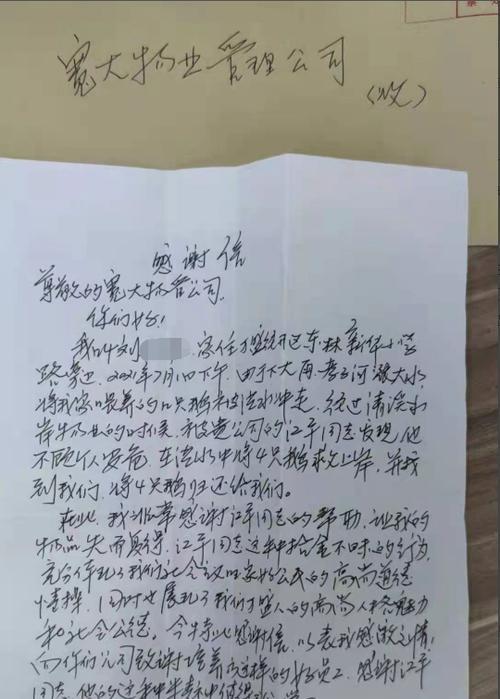 宽大物业管理公司
(收)
感谢信
尊敬的宽大物管公司
你们好!
我叫刘 家住万盛经开区东林新华小学
路旁边,2021年7月1日下午,由于下大雨,孝子河涨大水
将我家喂养的4只鹅被洪水冲走,经过清溪水
岸物业的时候,被贵公司的江平同志发现,他
不顾个人安危,在洪水中将4只鹅救上岸,并找
到我们,将4只鹅归还给我们。
在此,我非常感谢江平同志的帮助,让我的
物品失而复得,江平同志这种拾金不昧的行为,
充分体现了我们社会主义国家好公民的高尚道德
情操,同时也展现了我们万盛人的高尚人格魅力
和社会公德。今特此感谢信,以表我感激之情,
向你们公司致谢培养这样的好员工,感谢江平
同志,他的这种